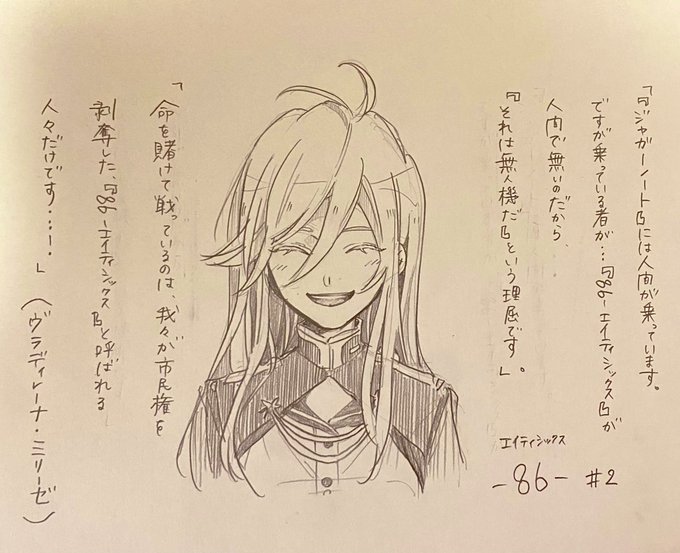 「『ジャガーノート』には人間が乗っています。
ですが乗っている者が…『86-エイティシックス』が
人間で無いのだから、
『それは無人機だ』という理屈です」。
「命を賭けて戦っているのは、我々が市民権を
剥奪した、『86-エイティシックス』と呼ばれる
人々だけです…ー。」
(ヴラディレーナ・ミリーゼ)
エイティシックス
-86- #2